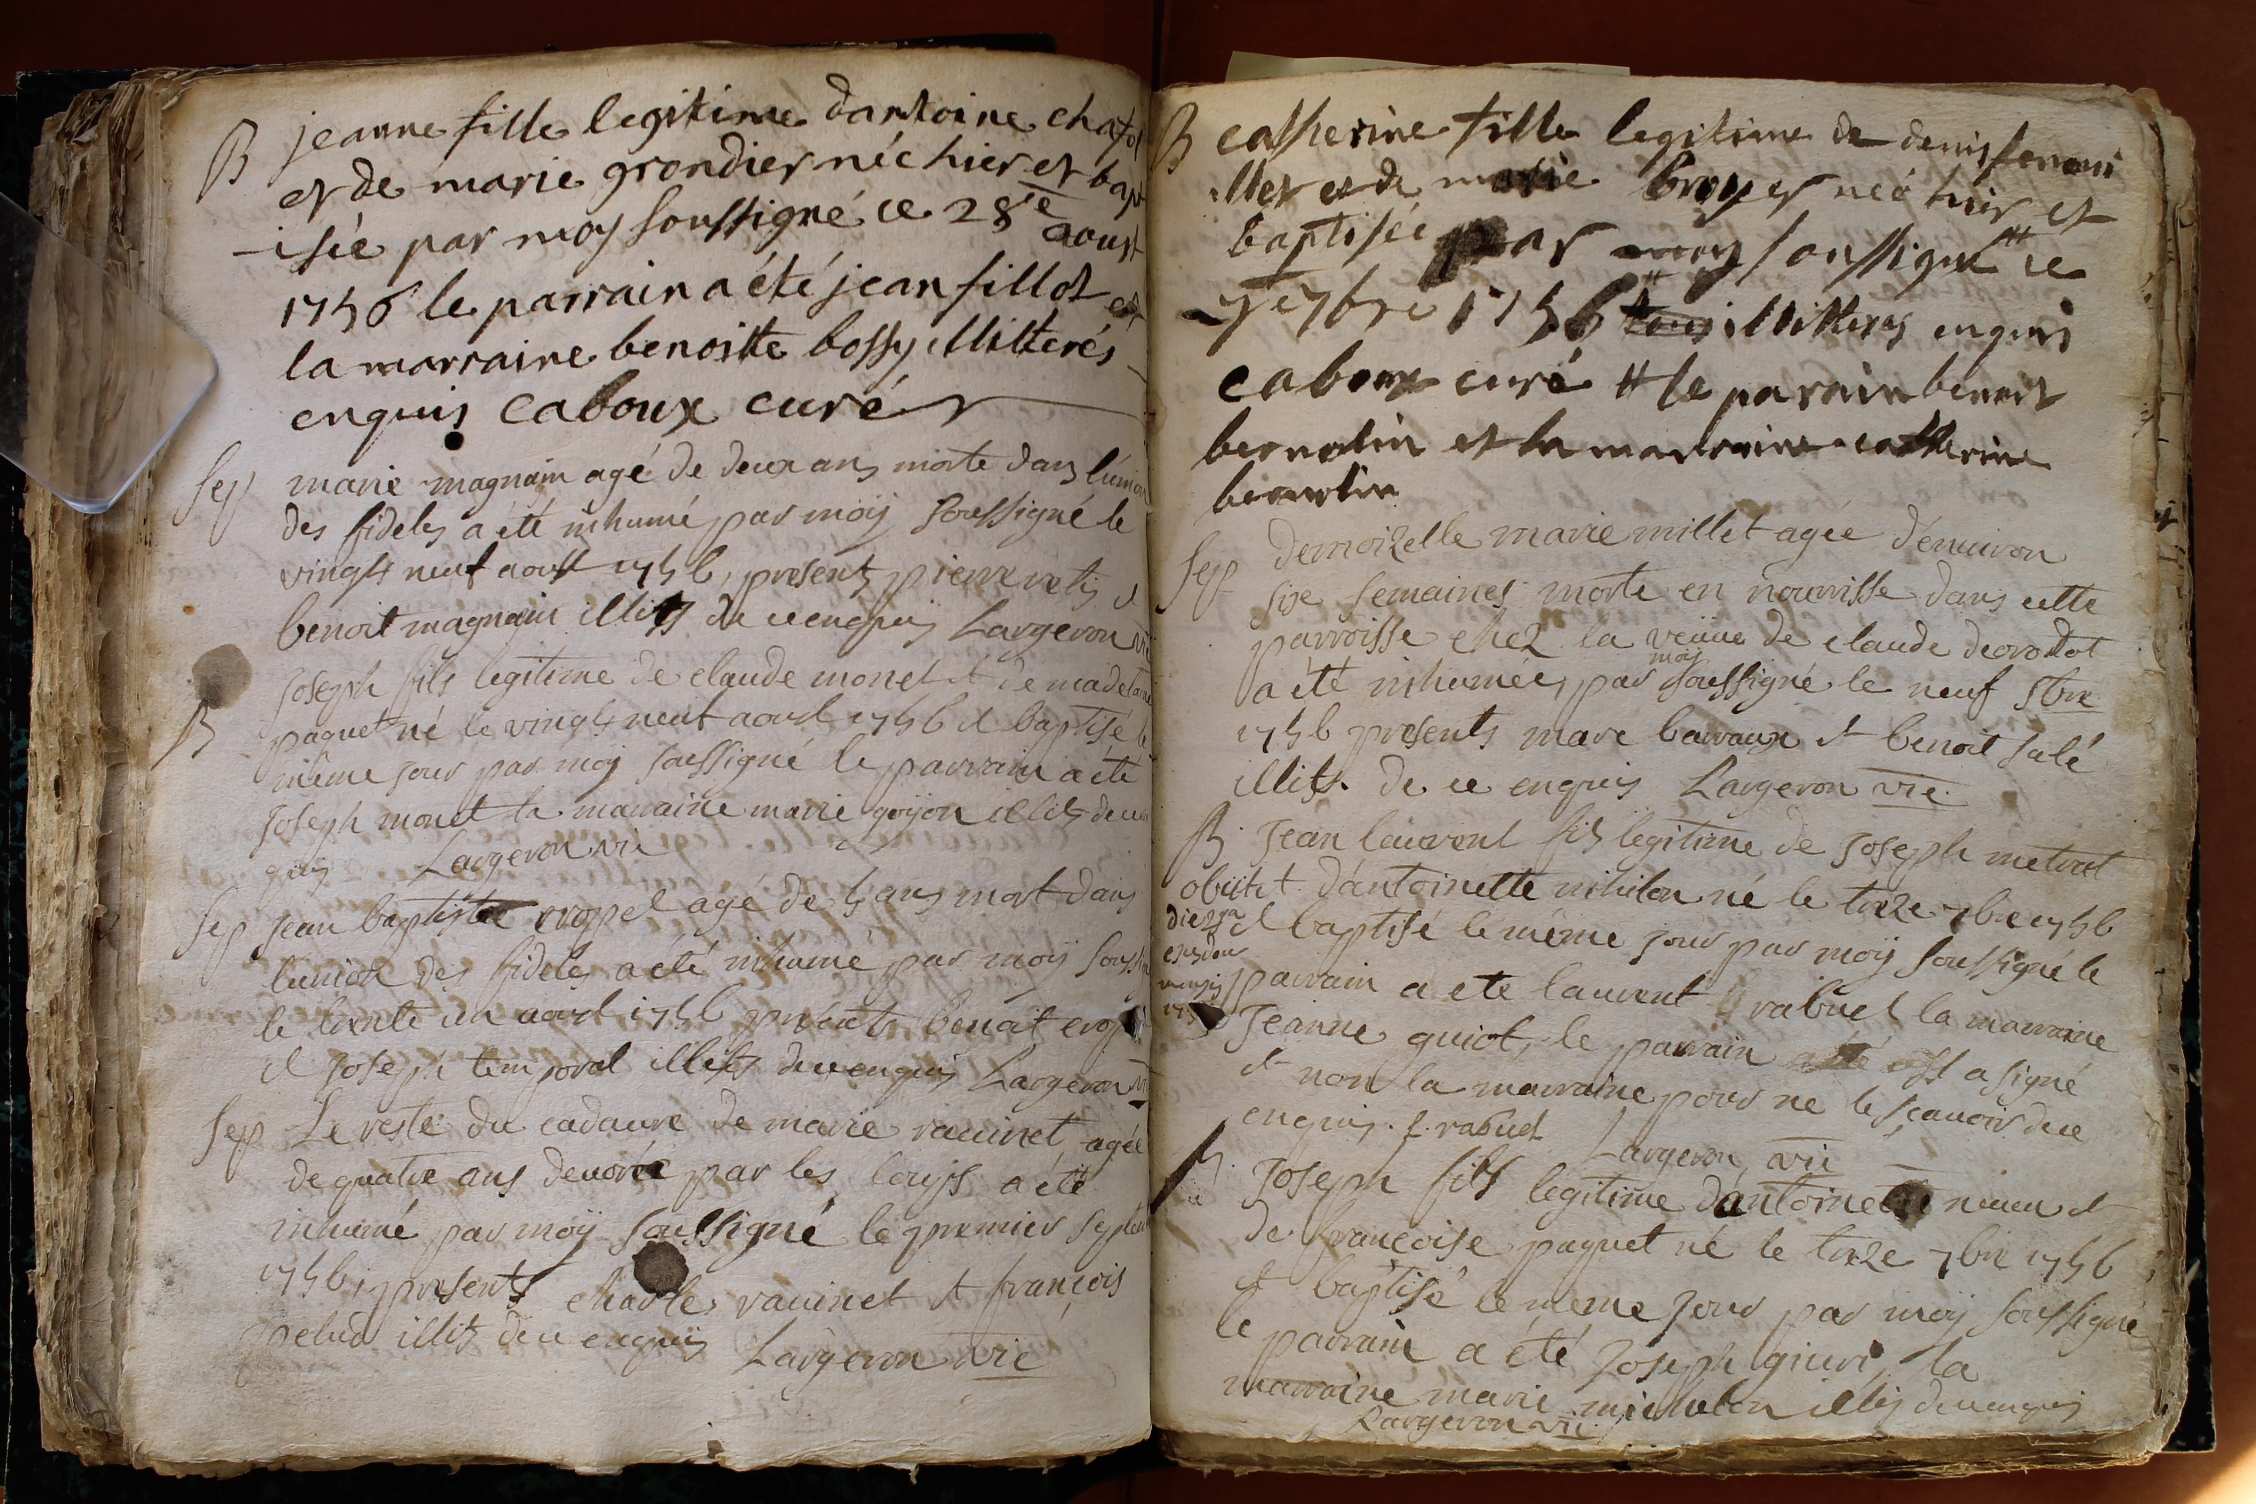 B jeanne fille legitime dantoine
et de marie grondier néé hier et bap
-isée par moy soussigné ce 28e aoust
1756 le parrain a été jean fillot et
la marraine benoitte bossy illitterés
enquis caboux curé
sep marie magnain agé de deux ans morte dans l'union
des fideles a été inhumé par moij soussigné le
vingt neuf aoust 1756, presents pierre et
benoit magnain illits de ce enquis Largeron vic
Joseph fils legitime de claude monet et de madelaine
B paquet né le vingt neuf aoust 1756 et baptisé le
même jour par moij soussigné le parrain a été
Joseph monet la marraine marie goyon illits de ce en
quis Largeron vic
sep jean baptiste croppel agé de 5 ans mort dans
l'union des fideles a été inhumé par moij soussi
le trente un aoust 1756 presents benoit
et Joseph temporal illits de ce enquis Largeron vic
sep Le reste du cadavre de marie raccinet agée
de quatre ans devorée par les loups a été
inhumé par moij soussigné le premier septem
1756, presents charle raccinet et françois
pelud illits de ce enquis Largeron vic
B catherine fille legitime de denis
et de marie broyer néé hier et
baptiséé par moy soussigné # ce
7bre 1756 # illitterés enquis
caboux curé # le parain benoit
bernolin et la marraine catherine
bernolin
sep demoizelle marie millet agée d'environ
six semaines morte en nourrisse dans cette
parroisse chez la veuve de claude
a été inhumée par moij soussigné le neuf 7bre
1756 presents marc bavoux et benoit salé
illits. de ce enquis Largeron vic
B. Jean laurent fils legitime de Joseph metrat
obiit et d'antoinette nihilon né le treze 7bre 1756
die 29a et baptisé le même jour par moij soussigné le
parrain a été laurent rabuel la marraine
Jeanne guiot, le parrain a signé
et non la marraine pour ne le sçavoir de ce
enquis. l. rabuel Largeron vic
B. Joseph fils legitime d'antoine neveu et
de françoise paquet né le treze 7bre 1756
et baptisé le même jour par moij soussigné
le parrain a été Joseph la
marraine marie michelon illits de ce enquis
Largeron vic